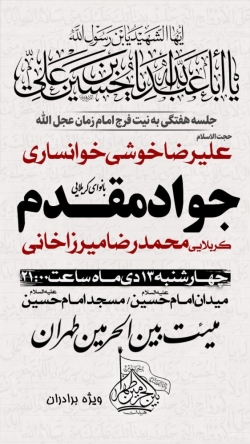 ایها الشهید یابن رسول الله
یا اباعبدالله یا حسین بن علی
جلسه هفتگی به نیت فرج امام زمان عجل الله
حجت الاسلام
علیرضا خوشی خوانساری
بانوای کربلایی
جواد مقدم
کربلایی محمدرضا میرزاخانی
چهارشنبه ۱۳ دی ماه ساعت ۲۱:۰۰
میدان امام حسین علیه السلام / مسجد امام حسین علیه السلام
هیئت بین الحرمین طهران
ویژه برادران